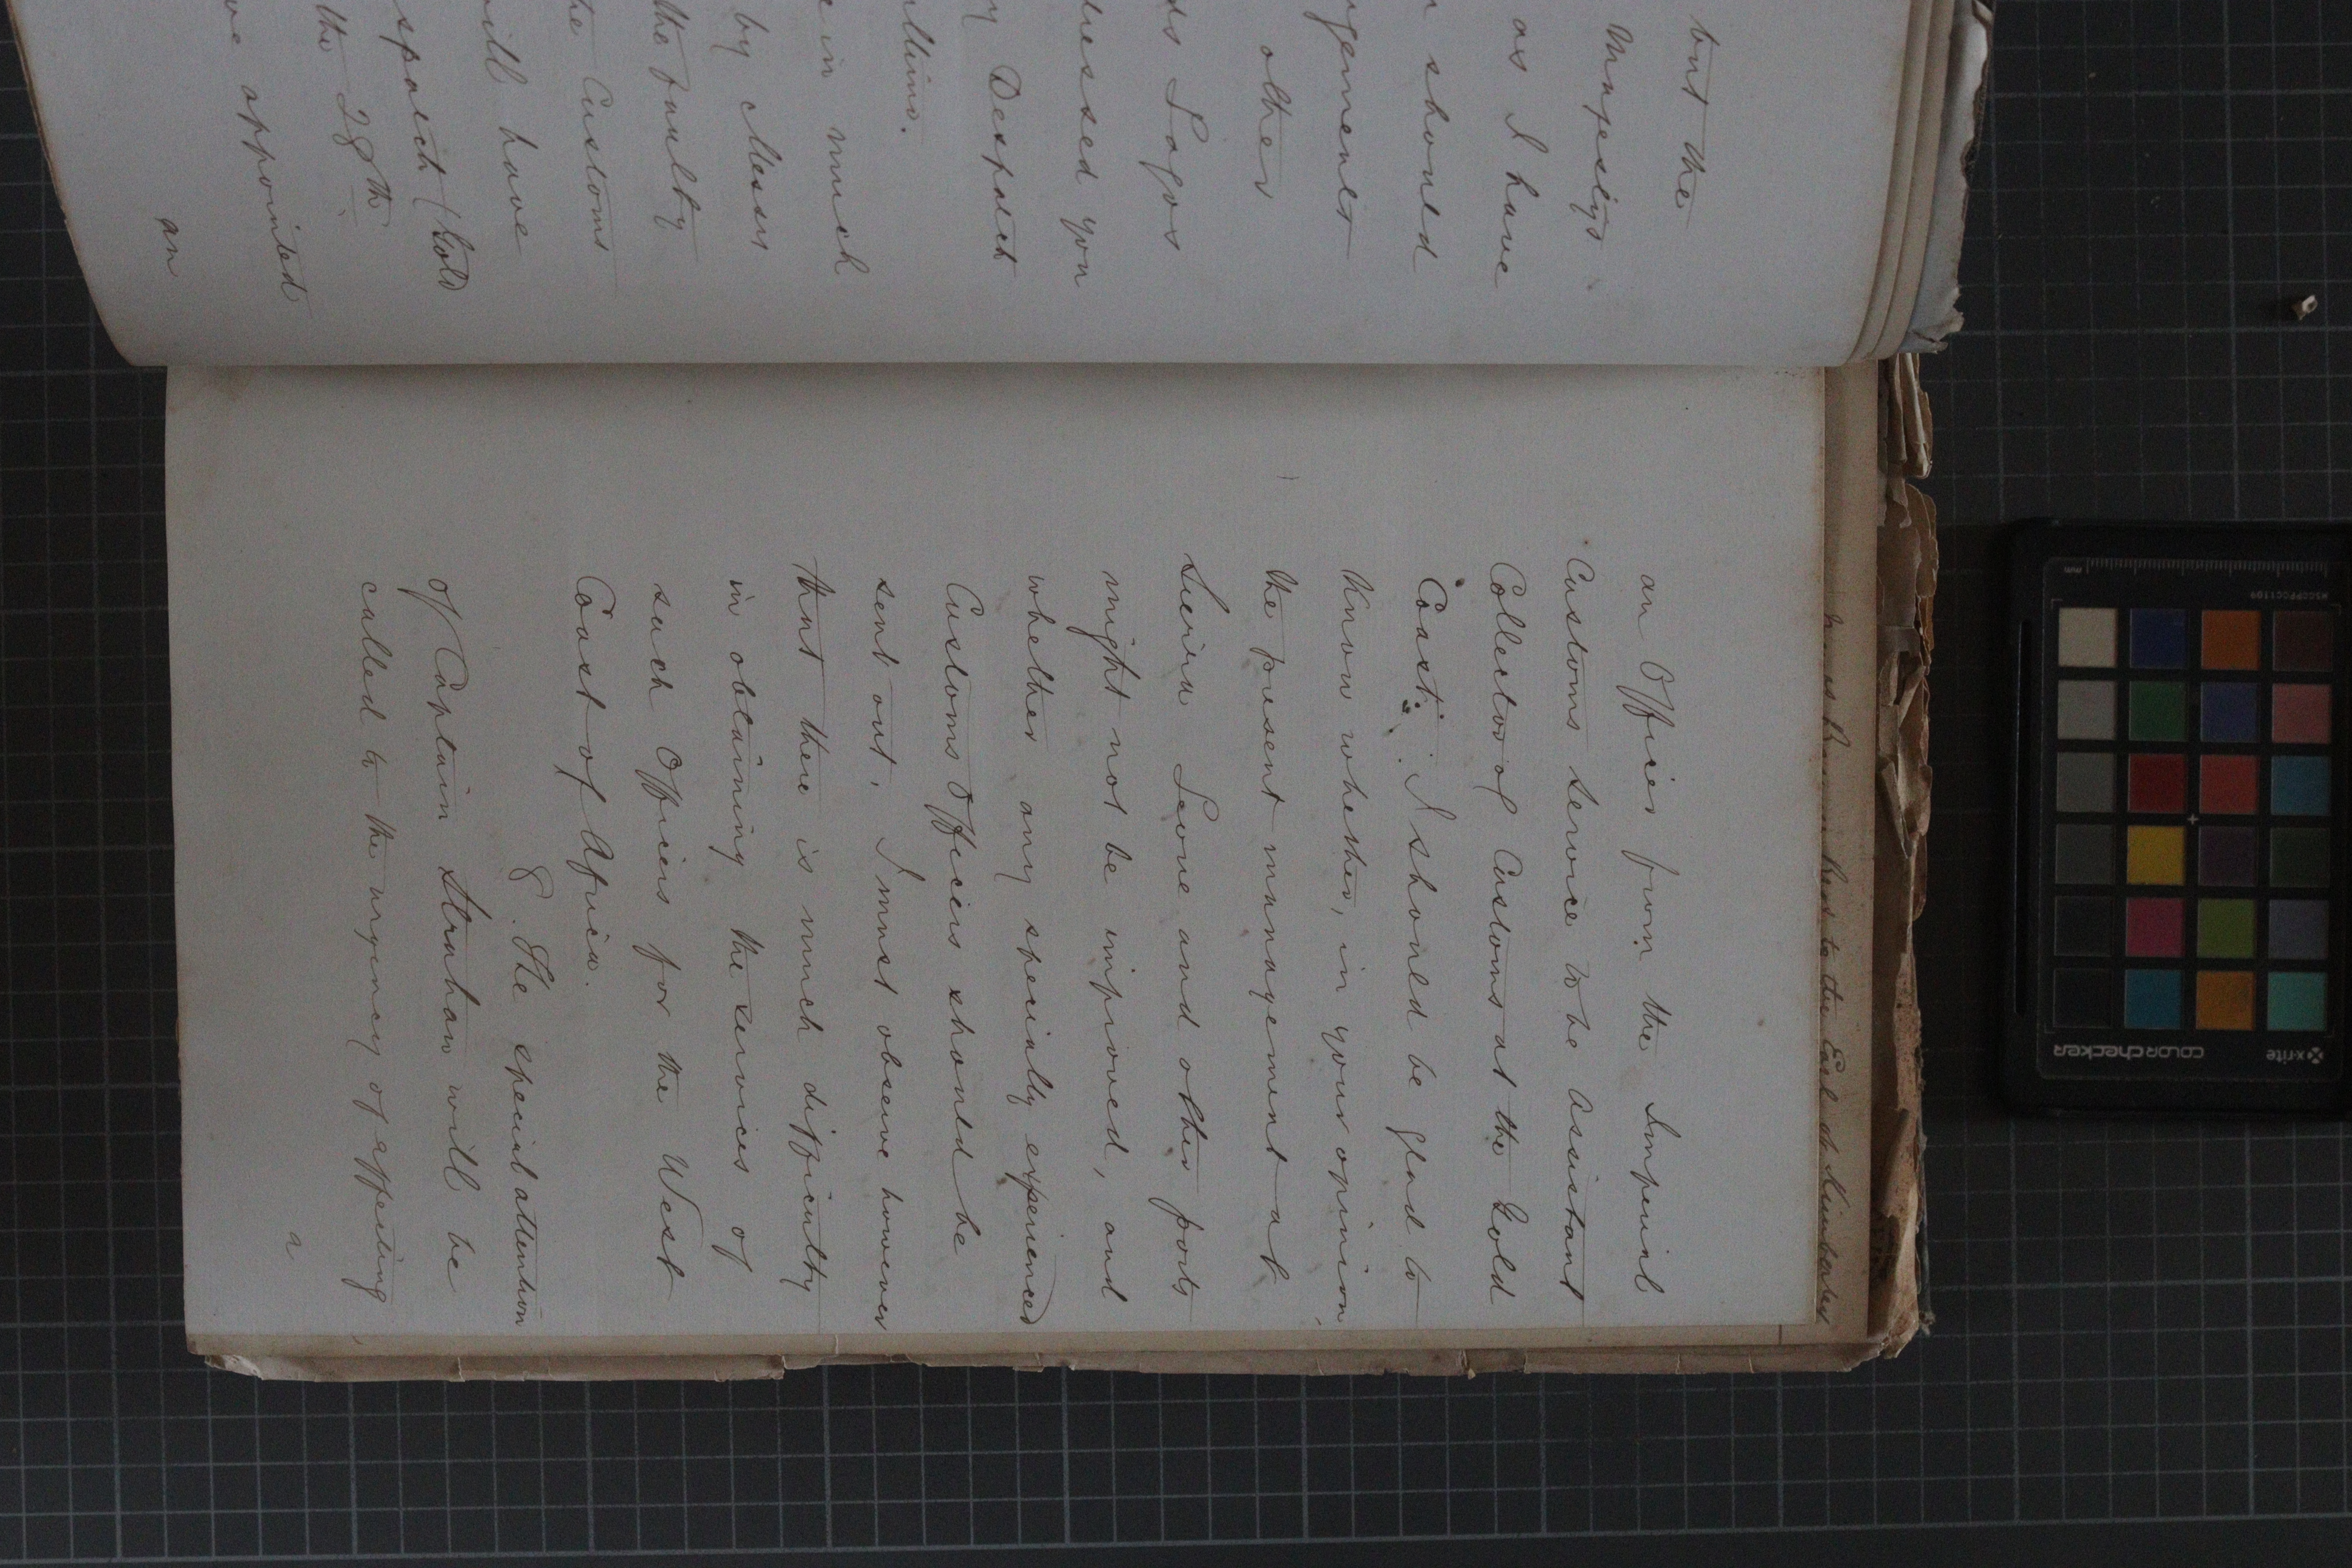 but the
Majesty's
as I have
should
other
Lagos
you
Despatch
in much
by Messrs
the faulty
Customs
have
(Gold
the 28th
appointed
an
an Officer from the Imperial
Customs Service to be Assistant
Collector of Customs at the Gold
Coast. I should be glad to
know whether, in your opinion,
the present management at
Sierra Leone and other ports
might not be improved, and
whether any specially experienced
Customs Officers should be
sent out. I must observe however
that there is much difficulty
in obtaining the services of
such Officers for the West
Coast of Africa.
8. The special attention
of Captain Strahan will be
called to the urgency of effecting
a
to the Earl of Kimberley
x-rite
colorchecker
mm
MSCCPPCC1109